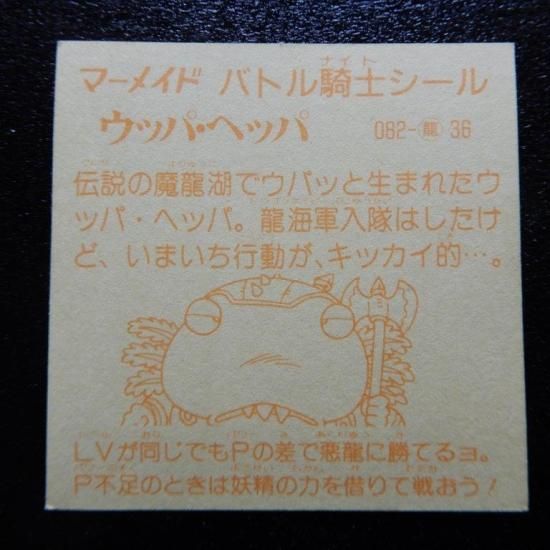 マーメイド バトル騎士シール
ウッパ・ヘッパ 082-龍 36
伝説の魔龍湖でウパッと生まれたウ
ッパ・ヘッパ。龍海軍入隊はしたけ
ど、いまいち行動が、キッカイ的…。
LVが同じでもPの差で悪龍に勝てるヨ。
P不足のときは妖精の力を借りて戦おう!